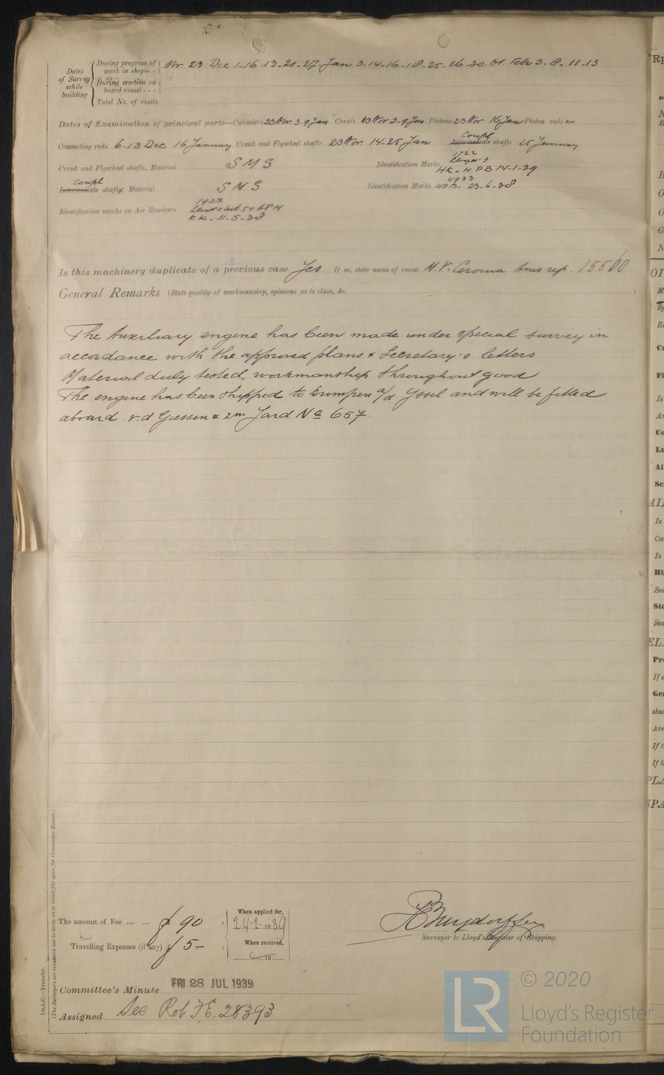 Dates of Survey while building
During progress of work in shops - - Nov 23 Dec 1-16-13-21-27 Jan 3-14-16-18-25-26-30-31 Feb 3-8-11-13
During erection on board vessel - - -
Total No. of visits
Dates of Examination of principal parts—Cylinders 23 Nov 3-9 Jan Covers 23 Nov 3-9 Jan Pistons 23 Nov 16 Jan Piston rods
Connecting rods 6-13 Dec 16 January Crank and Flywheel shafts 23 Nov 14-25 Jan Intermediate shafts 25 January
Coupl
Crank and Flywheel shafts, Material S M S Identification Marks HK-HPB 14-1-39
Coupl
Intermediate shafts, Material S M S Identification Marks 4933 23-6-38
Identification marks on Air Receivers KK. 11-5-38
Is this machinery duplicate of a previous case Yes If so, state name of vessel M.V. Ceronia rep. 15500
General Remarks (State quality of workmanship, opinions as to class, &c.
The Auxiliary engine has been made under special survey in
accordance with the approved plans & Secretary's letters
Material duly tested, workmanship throughout good
The engine has been shipped to Krimpen a/d Yssel and will be fitted
aboard v.d Giessen & Zm Yard No 657.
The amount of Fee ... ... f 90 :
When applied for,
Travelling Expenses (if any) f 5- :
When received,
Surveyor to Lloyd's Register of Shipping.
Committee's Minute FRI 28 JUL 1939
Assigned See Rot F.E. 28393
(The Surveyors are requested not to write on or below the space for Committee's Minute.)
© 2020
LR
Lloyd's Register
Foundation